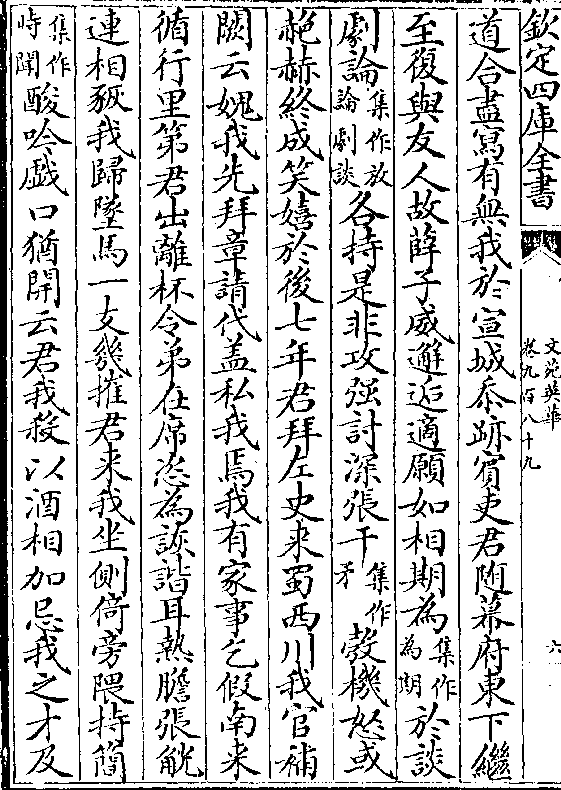 欽定四庫全書
文苑英華
卷九百八十九
六
道合盡寫有無我於宣城忝跡賓吏君随幕府東下繼
至復與友人故薛子威邂逅適願如相期為集作為朗於談
劇論集作放論劇談各持是非攻强討深張干集作矛彀機怒或
赩赫終成笑嬉於後七年君拜左史来蜀西川我官補
闕云媿我先拜章請代盖私我焉我有家事乞假南来
循行里第君出離杯令弟在席恣為詼諧耳熱膽張觥
連相豗我歸墜馬一支幾摧君来我坐側倚旁隈持簡
集作時閗酸吟戯口猶開云君我殺以酒相加忌我之才及